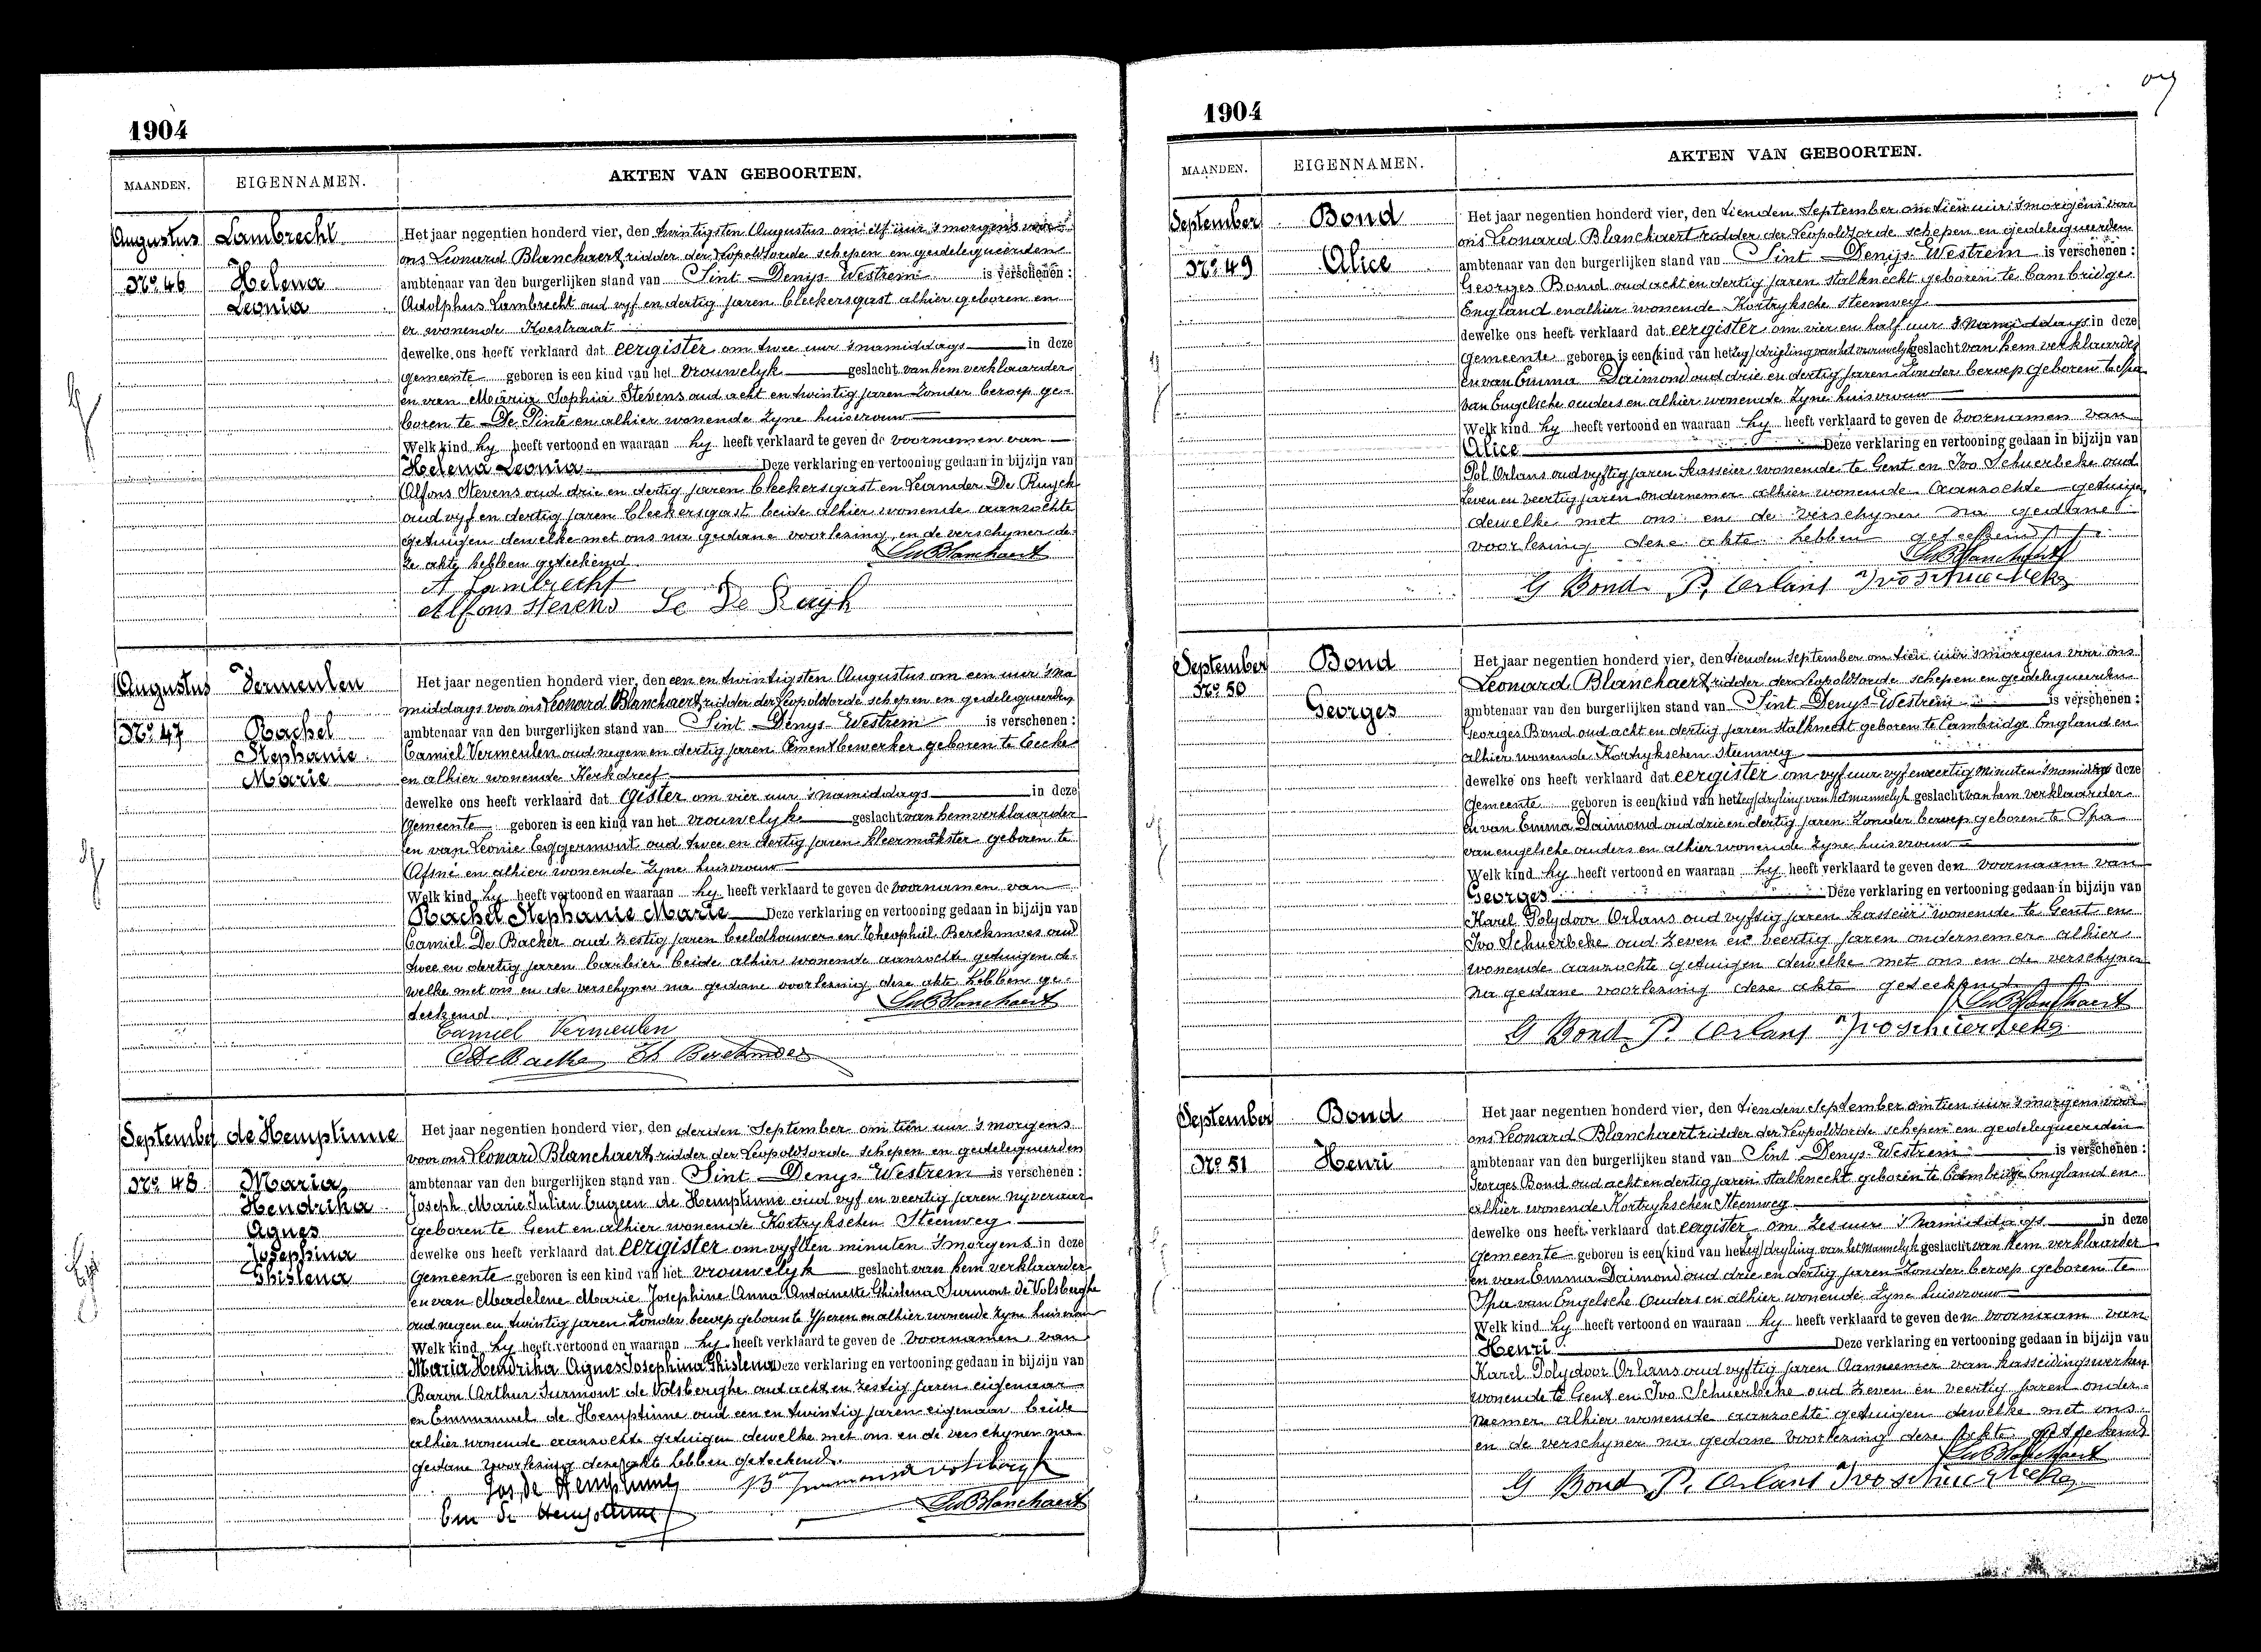 1904
MAANDEN. EIGENNAMEN. AKTEN VAN GEBOORTEN.
Augustus Lambrecht
No. 46 Helena
Leonia
Het jaar negentien honderd vier, den twintigsten Augustus om elf uur 's morgens voor
ons Leonard Blanchaert ridder der Leopoldsorde schepen en gedelegueerden
ambtenaar van den burgerlijken stand van Sint Denys Westrem is verschenen :
Adolphus Lambrecht oud vyf en dertig jaren bleekersgast alhier geboren en
er wonende Koestraat
dewelke ons heeft verklaard dat eergister om twee uur 's namiddags in deze
gemeente geboren is een kind van het vrouwelyk geslacht van hem verklaarder
en van Maria Sophia Stevens oud acht en twintig jaren zonder beroep ge-
boren te De Pinte en alhier wonende zyne huisvrouw
Welk kind hy heeft vertoond en waaraan hy heeft verklaard te geven de voornamen van
Helena Leonia Deze verklaring en vertooning gedaan in bijzijn van
Alfons Stevens oud drie en dertig jaren bleekersgast en Leander De Ruyck
oud vyf en dertig jaren bleekersgast beide alhier wonende aanzochte
getuigen dewelke met ons na gedane voorlezing en de verschyner de-
ze akte hebben geteekend
Le Blanchaert
A Lambrecht
Alfons Stevens Le De Ruyck
Augustus Vermeulen
No. 47 Rachel
Stephanie
Marie
Het jaar negentien honderd vier, den een en twintigsten Augustus om een uur 's na
middags voor ons Leonard Blanchaert ridder der Leopoldsorde schepen en gedelegueerden
ambtenaar van den burgerlijken stand van Sint Denys Westrem is verschenen :
Camiel Vermeulen oud negen en dertig jaren cimentbewerker geboren te Eecke
en alhier wonende Kerkdreef
dewelke ons heeft verklaard dat gister om vier uur 's namiddags in deze
gemeente geboren is een kind van het vrouwelyk geslacht van hem verklaarder
en van Leonie Eggermont oud twee en dertig jaren kleermakster geboren te
Afsné en alhier wonende zyne huisvrouw
Welk kind hy heeft vertoond en waaraan hy heeft verklaard te geven de voornamen van
Rachel Stephanie Marie Deze verklaring en vertooning gedaan in bijzijn van
Camiel De Backer oud zestig jaren beeldhouwer en Theophiel Berckmoes oud
twee en dertig jaren barbier beide alhier wonende aanzochte getuigen de-
welke met ons en de verschyner na gedane voorlezing deze akte hebben ge-
teekend
Le Blanchaert
Camiel Vermeulen
C De Backer Th Berckmoes
September de Hemptinne
No. 48 Maria
Hendrika
Agnes
Josephina
Ghislena
Het jaar negentien honderd vier, den derden September om tien uur 's morgens
voor ons Leonard Blanchaert ridder der Leopoldsorde schepen en gedelegueerden
ambtenaar van den burgerlijken stand van Sint Denys Westrem is verschenen :
Joseph Marie Julien Eugeen de Hemptinne oud vyf en veertig jaren nyveraar
geboren te Gent en alhier wonende Kortrykschen Steenweg
dewelke ons heeft verklaard dat eergister om vyftien minuten 's morgens in deze
gemeente geboren is een kind van het vrouwelyk geslacht van hem verklaarder
en van Madelene Marie Josephine Anna Antoinette Ghislena Surmont de Volsberghe
oud negen en twintig jaren zonder beroep geboren te Yperen en alhier wonende zyne huisvrouw
Welk kind hy heeft vertoond en waaraan hy heeft verklaard te geven de voornamen van
Maria Hendrika Agnes Josephina Ghislena Deze verklaring en vertooning gedaan in bijzijn van
Baron Arthur Surmont de Volsberghe oud acht en zestig jaren eigenaar
en Emmanuel de Hemptinne oud een en twintig jaren eigenaar beide
alhier wonende aanzochte getuigen dewelke met ons en de verschyner na
gedane voorlezing deze akte hebben geteekend.
Jos. de Hemptinne Bon Surmont de Volsberghe
Em de Hemptinne Le Blanchaert
1904
MAANDEN. EIGENNAMEN. AKTEN VAN GEBOORTEN.
September Bond
No. 49 Alice
Het jaar negentien honderd vier, den tienden September om tien uur 's morgens voor
ons Leonard Blanchaert ridder der Leopoldsorde schepen en gedelegueerden
ambtenaar van den burgerlijken stand van Sint Denys Westrem is verschenen :
Georges Bond oud acht en dertig jaren stalknecht geboren te Cambridge
England en alhier wonende Kortryksche Steenweg
dewelke ons heeft verklaard dat eergister om vier en half uur 's namiddags in deze
gemeente geboren is een (kind van het leg) drijling van het vrouwelyk geslacht van hem verklaarder
en van Emma Daimond oud drie en dertig jaren zonder beroep geboren te Spa
van Engelsche ouders en alhier wonende zyne huisvrouw
Welk kind hy heeft vertoond en waaraan hy heeft verklaard te geven de voornamen van
Alice Deze verklaring en vertooning gedaan in bijzijn van
Pol Orlans oud vyftig jaren kasseier wonende te Gent en Ivo Schuerbeke oud
zeven en veertig jaren ondernemer alhier wonende aanzochte getuigen
dewelke met ons en de verschyner na gedane
voorlezing deze akte hebben geteekend
Le Blanchaert
G Bond P. Orlans Ivo Schuerbeke
September Bond
No. 50
Georges
Het jaar negentien honderd vier, den tienden September om tien uur 's morgens voor ons
Leonard Blanchaert ridder der Leopoldsorde schepen en gedelegueerden
ambtenaar van den burgerlijken stand van Sint Denys Westrem is verschenen :
Georges Bond oud acht en dertig jaren stalknecht geboren te Cambridge England en
alhier wonende Kortrykschen Steenweg
dewelke ons heeft verklaard dat eergister om vyf uur vyf en veertig minuten 's namiddags deze
gemeente geboren is een (kind van het leg) dryling van het mannelyk geslacht van hem verklaarder
en van Emma Daimond oud drie en dertig jaren zonder beroep geboren te Spa
van engelsche ouders en alhier wonende zyne huisvrouw
Welk kind hy heeft vertoond en waaraan hy heeft verklaard te geven den voornaam van
Georges Deze verklaring en vertooning gedaan in bijzijn van
Karel Polydoor Orlans oud vyftig jaren kasseier wonende te Gent en
Ivo Schuerbeke oud zeven en veertig jaren ondernemer alhier
wonende aanzochte getuigen dewelke met ons en de verschyner
na gedane voorlezing deze akte geteekend
Le Blanchaert
G Bond P. Orlans Ivo Schuerbeke
September Bond
No. 51 Henri
Het jaar negentien honderd vier, den tienden September om tien uur 's morgens voor
ons Leonard Blanchaert ridder der Leopoldsorde schepen en gedelegueerden
ambtenaar van den burgerlijken stand van Sint Denys Westrem is verschenen :
Georges Bond oud acht en dertig jaren stalknecht geboren te Cambridge England en
alhier wonende Kortrykschen Steenweg
dewelke ons heeft verklaard dat eergister om zes uur 's namiddags in deze
gemeente geboren is een (kind van het leg) dryling van het mannelyk geslacht van hem verklaarder
en van Emma Daimond oud drie en dertig jaren zonder beroep geboren te
Spa van Engelsche ouders en alhier wonende zyne huisvrouw
Welk kind hy heeft vertoond en waaraan hy heeft verklaard te geven den voornaam van
Henri Deze verklaring en vertooning gedaan in bijzijn van
Karel Polydoor Orlans oud vyftig jaren Aannemer van kasseidingswerken
wonende te Gent en Ivo Schuerbeke oud zeven en veertig jaren onder-
nemer alhier wonende aanzochte getuigen dewelke met ons
en de verschyner na gedane voorlezing deze akte geteekend
Le Blanchaert
G Bond P. Orlans Ivo Schuerbeke